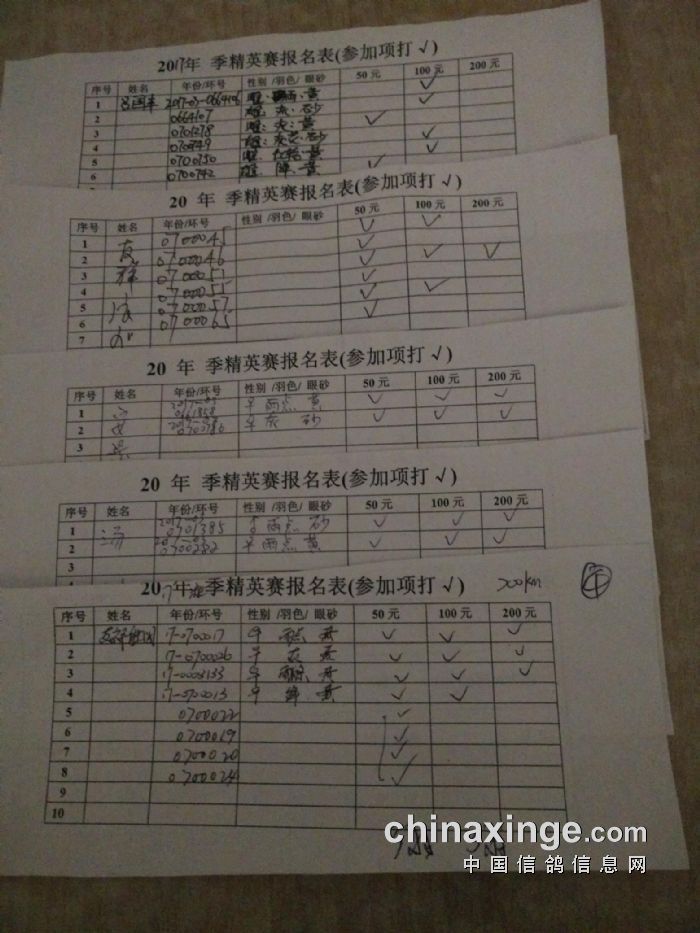 2017年 季精英赛报名表(参加项打 √)
序号 姓名 年份/环号 性别 /羽色/ 眼砂 50 元 100 元 200 元
1 2017-03-0664106 雄 黄 √
2 0664107 雄 灰 砂 √
3 0701278 雄 灰 黄 √
4 0700749 雄 砂 √
5 0700750 雄 红轮 黄 √
6 0700742 雄 黄 √
20 年 季精英赛报名表(参加项打 √)
序号 姓名 年份/环号 性别 /羽色/ 眼砂 50 元 100 元 200 元
1 0700045 √ √
2 友 0700046 √
3 0700051 √ √ √
4 0700055 √
5 0700057 √ √
6 0700065 √
7
20 年 季精英赛报名表(参加项打 √)
序号 姓名 年份/环号 性别 /羽色/ 眼砂 50 元 100 元 200 元
1 2017-03 0661858 雨点 黄 √ √ √
2 2017-03 0700786 灰 砂 √ √ √
3
20 年 季精英赛报名表(参加项打 √)
序号 姓名 年份/环号 性别 /羽色/ 眼砂 50 元 100 元 200 元
1 汤 2017-03 0701385 雨点 砂 √ √ √
2 2017-03 0700282 雨点 黄 √ √ √
3
4
2017年 季精英赛报名表(参加项打 √) 300km
序号 姓名 年份/环号 性别 /羽色/ 眼砂 50 元 100 元 200 元
1 17-0700017 雨点 黄 √ √ √
2 17-0700026 灰 黄 √ √ √
3 17-0003133 黄 √ √ √
4 17-0700013 黄 √ √
5 0700022 √
6 0700019 √
7 0700020 √
8 0700024 √
9
10
chinaxinge.com
中国信鸽信息网